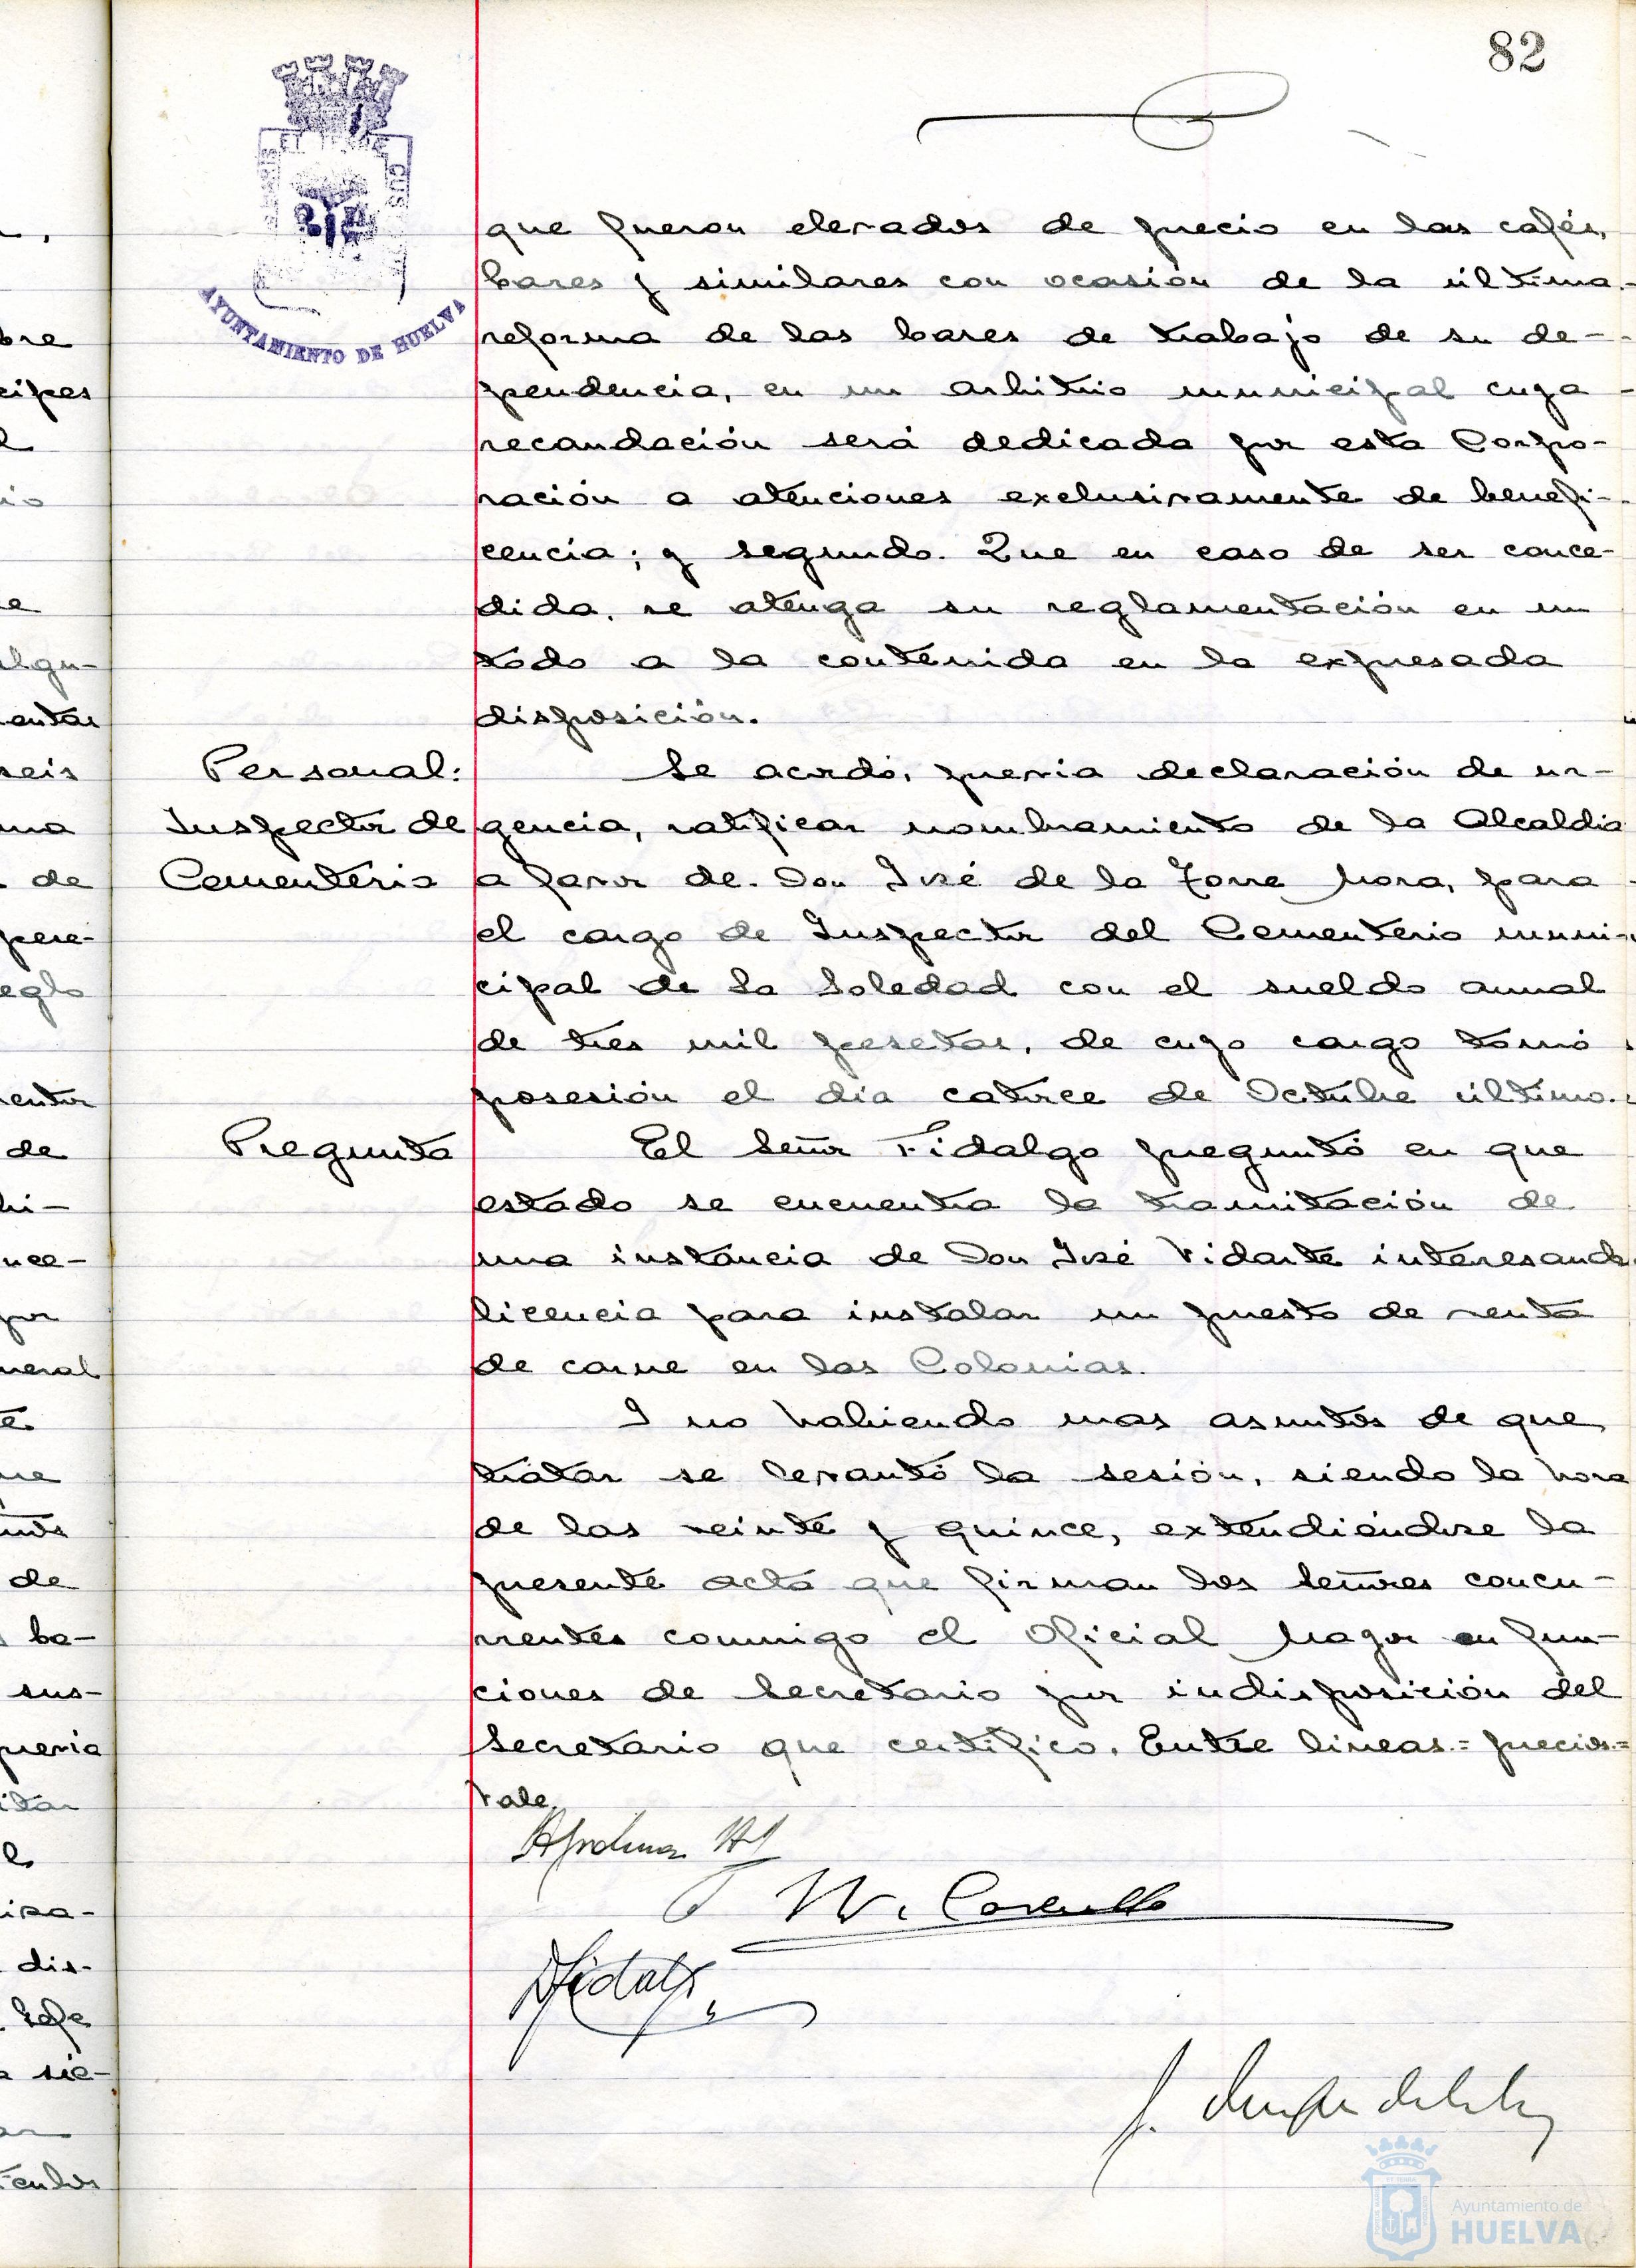 82
AYUNTAMIENTO DE HUELVA
que fueron elevados de precio en los cafés,
bares y similares con ocasión de la última
reforma de las bases de trabajo de su de-
pendencia, en un arbitrio municipal cuya
recaudación será dedicada por esta Corpo-
ración a atenciones exclusivamente de benefi-
cencia; y segundo. Que en caso de ser conce-
dida, se atenga su reglamentación en un
todo a la contenida en la expresada
disposición.
Personal: Se acordó, previa declaración de ur-
Inspector de gencia, ratificar nombramiento de la Alcaldia
Cementerio a favor de Don José de la Torre Mora, para
el cargo de Inspector del Cementerio muni-
cipal de la Soledad con el sueldo anual
de tres mil pesetas, de cuyo cargo tomó
posesión el dia catorce de Octubre último.
Pregunta El Señor Fidalgo preguntó en que
estado se encuentra la tramitación de
una instancia de Don José Vidarte interesando
licencia para instalar un puesto de venta
de carne en las Colonias.
Y no habiendo mas asuntos de que
tratar se levantó la sesión, siendo la hora
de las veinte y quince, extendiéndose la
presente acta que firman los Señores concu-
rrentes conmigo el Oficial Mayor en fun-
ciones de Secretario por indisposición del
Secretario que certifico. Entre lineas.= precios.=
Vale.
Fidalgo
Ayuntamiento de
HUELVA
bre
cipes
algu-
entar
seis
de
eglo
de
nce-
por
neral
de
ba-
sus-
dis-
Jefe
sie-